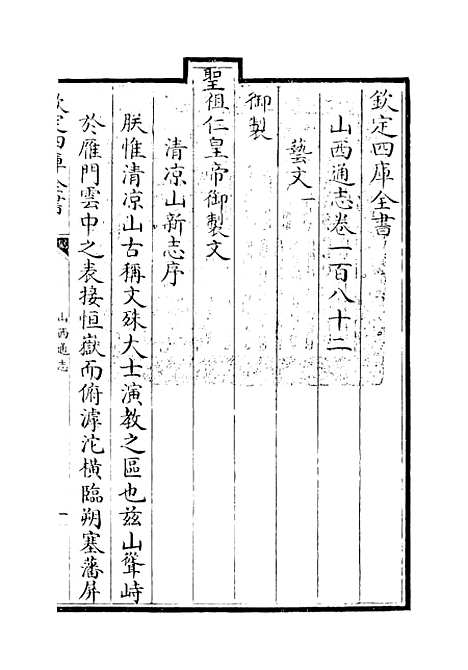 欽定四庫全書
山西通志卷一百八十二
藝文一
御製
聖祖仁皇帝御製文
清凉山新志序
朕惟清凉山古稱文殊大士演教之區也兹山聳峙
於雁門雲中之表接恒嶽而俯滹沱橫臨朔塞藩屏
欽定四庫全書
山西通志
一